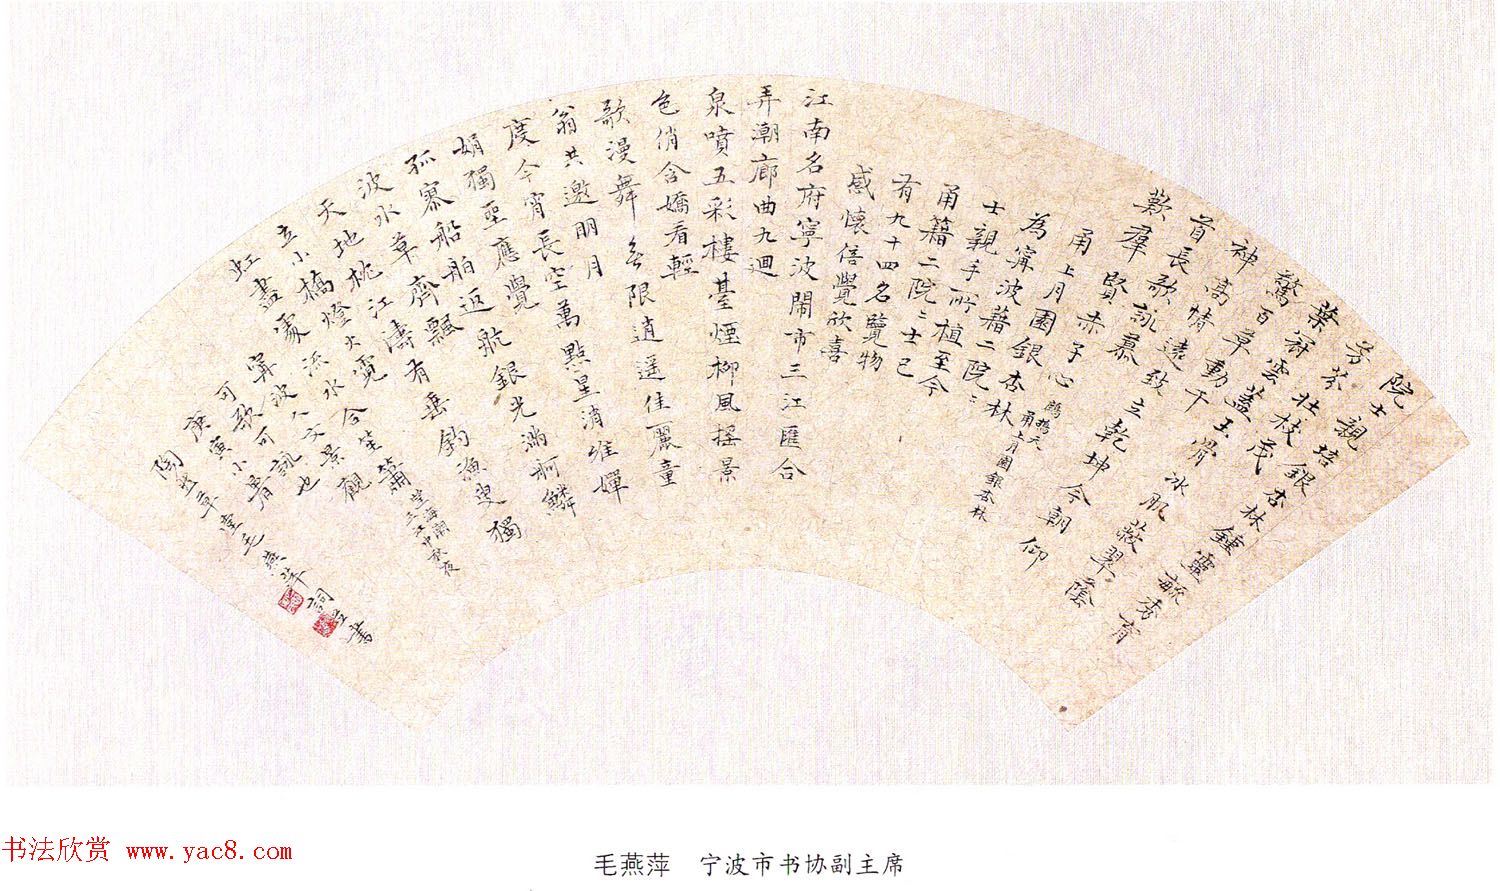 院士親培銀杏林鍾靈毓秀育
芳芬壯枝茂
葉冠雲蓋玉骨冰肌蔽翠蔭
驚百草動千
神高情遠致立乾坤今朝仰
首長歌詠慕
歎群賢赤子心
鷓鴣天
甬上月園銀杏林
甬上月園銀杏林
為甯波籍二院二
士親手所植至今
甬籍二院二士已
有九十四名覽物
感懷倍覺欣喜
江南名府寧波鬧市三江匯合
弄潮廊曲九迴
泉噴五彩樓臺煙柳風搖景
色俏含嬌看輕
歌漫舞無限逍遥佳麗童
翁共邀明月
度今宵長空萬點星消維嬋
娟獨亞應覺
孤寒船舶返航銀光滿河鱗
波水草齊飄
天地枕江濤有垂釣漁叟獨
立小橋燈火
虹盡處流水今笙簫
望海潮
三江中秋夜
甯波人文景觀
可歌可詠也
庚寅小暑
陶然草堂毛燕萍詞並書
书法欣赏 www.yac8.com
毛燕萍 宁波市书协副主席